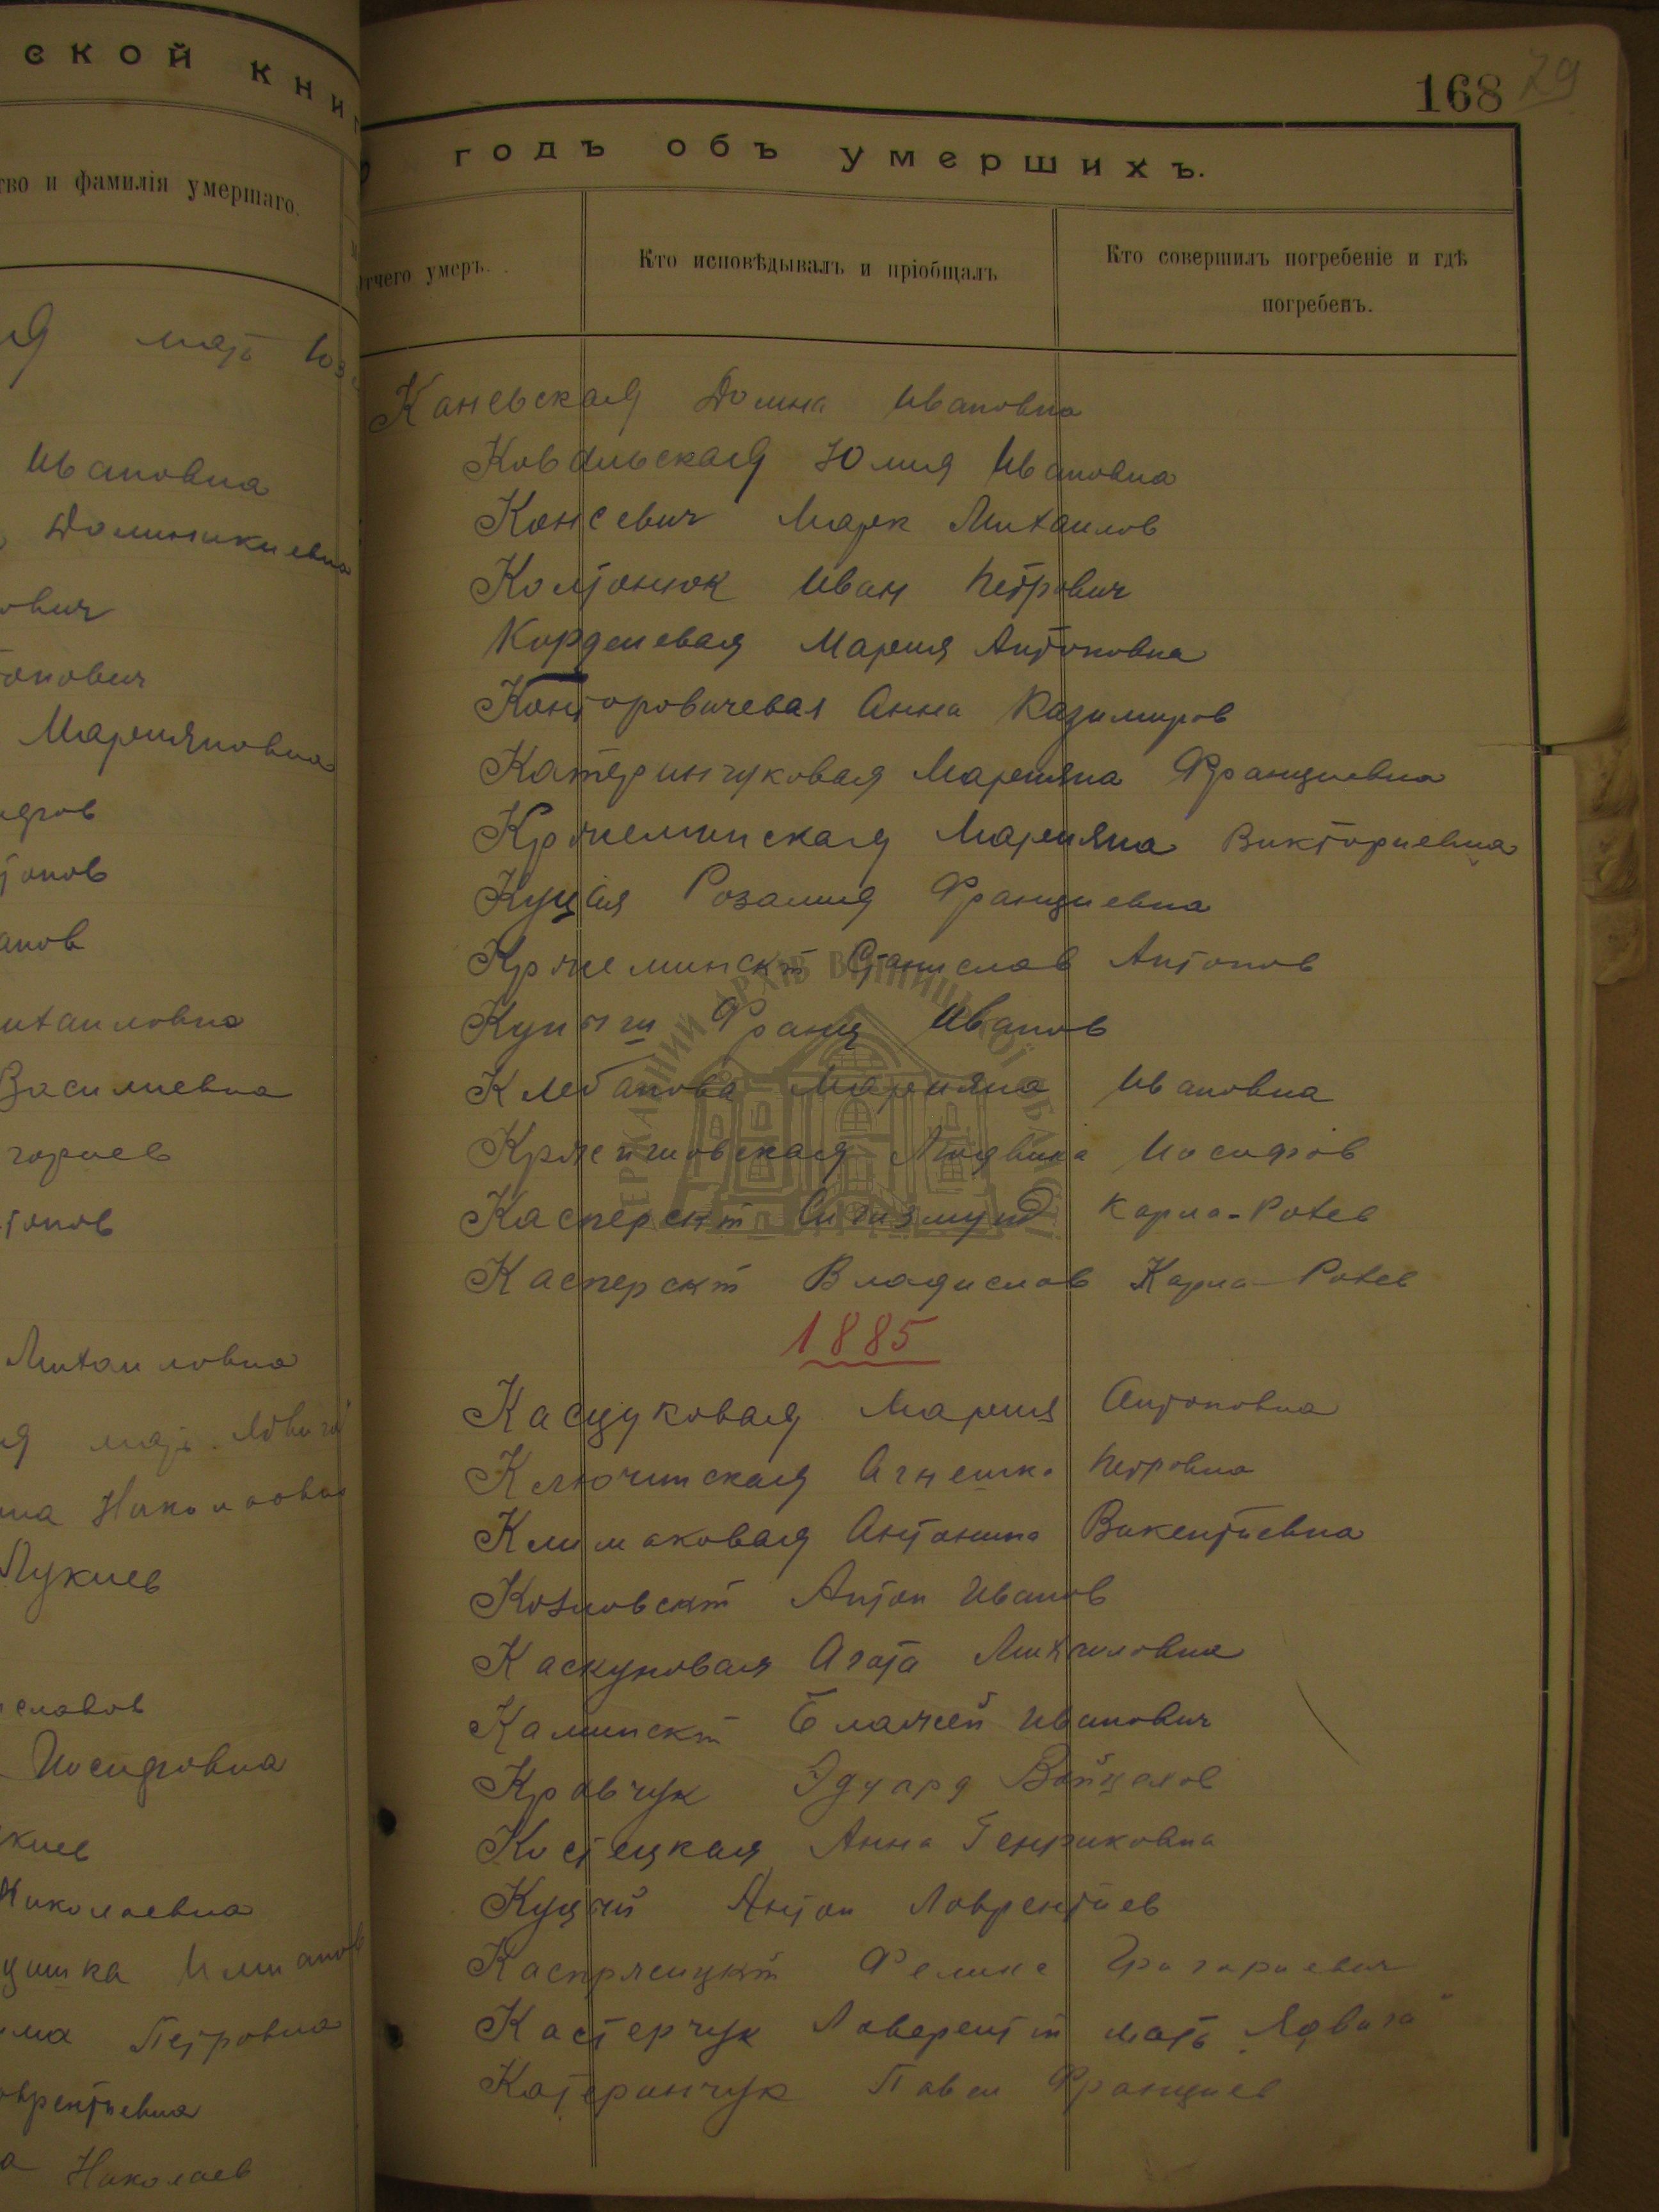 ской книг
тво и фамилія умершаго.
мать Юз
Ивановна
Доминикиевна
ович
онович
Марцяновна
анов
Василиевна
Михаиловна
мать
Николаевна
Лукиев
славов
Иосифовна
Николаевна
Петровна
Николаев
168 79
годъ объ умершихъ.
Отчего умеръ.
Кто исповѣдывалъ и пріобщалъ
Кто совершилъ погребеніе и гдѣ
погребенъ.
Каневская Домна Ивановна
Ковальская Юлия Ивановна
Консевич Марк Михаилов
Колтонюк Иван Петрович
Кордылевая Мария Антоновна
Конторовичевая Анна Казимиров
Катеринчуковая Марцяна Францевна
Кржеминская Марцяна Викториевна
Куцая Розалия Францевна
Кржеминскій Станислав Антонов
Франц Иванов
Клебанова Марцяна Ивановна
Людвика Иосифов
Касперскій Сигизмунд Карла-Рохев
Касперскій Владислав Карла-Рохев
1885
Касцуковая Мария Антоновна
Ключинская Агнешка Петровна
Климаковая Антонина Викентіевна
Козловскій Антон Иванов
Агата Михаиловна
Каминскій Блажей Иванович
Кравчук Эдуард Войцехов
Костецкая Анна Генриковна
Куцый Антон Лаврентіев
Каспржицкій Феликс Григориевич
Кастерчук Лаверентій мать "Ядвига"
Катеринчук Павел Францев